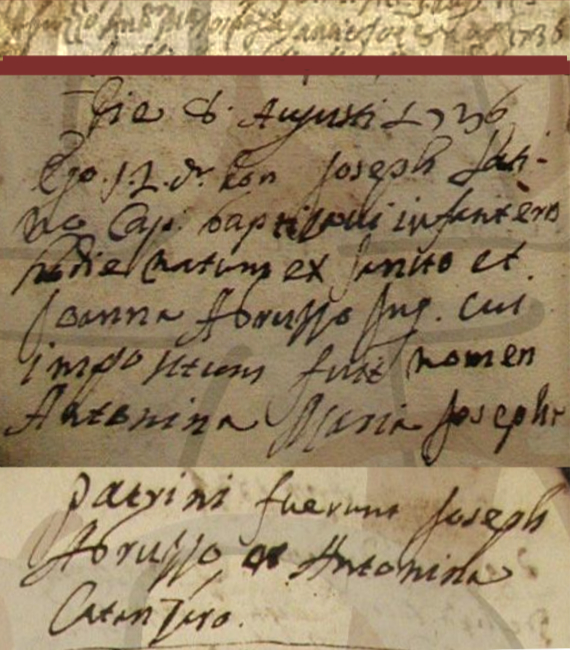 1738
Die 8. Augusti 1736
Ego J. L. dr. Don Joseph Sati-
no Cap. baptizaui infantem
hodie natum ex Sanito et
Joanna Abruzzo Jug. cui
impositum fuit nomen
Antonina Maria Josepha
patrini fuerunt Joseph
Abruzzo et Antonina
Catanzaro.